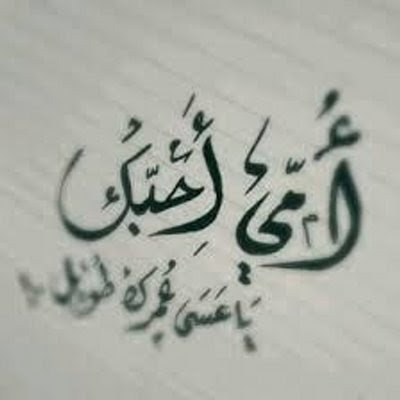 أُمّي أُحِبّكُ
يَا عَسَى عُمرِكْ طُوِيل